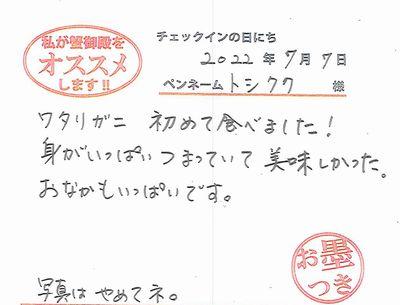 私が蟹御殿を
オススメ
します!!
チェックインの日にち
2022年7月7日
ペンネーム トシクク 様
ワタリガニ 初めて食べました!
身がいっぱいつまっていて美味しかった。
おなかもいっぱいです。
お墨
つき
写真は やめてネ。